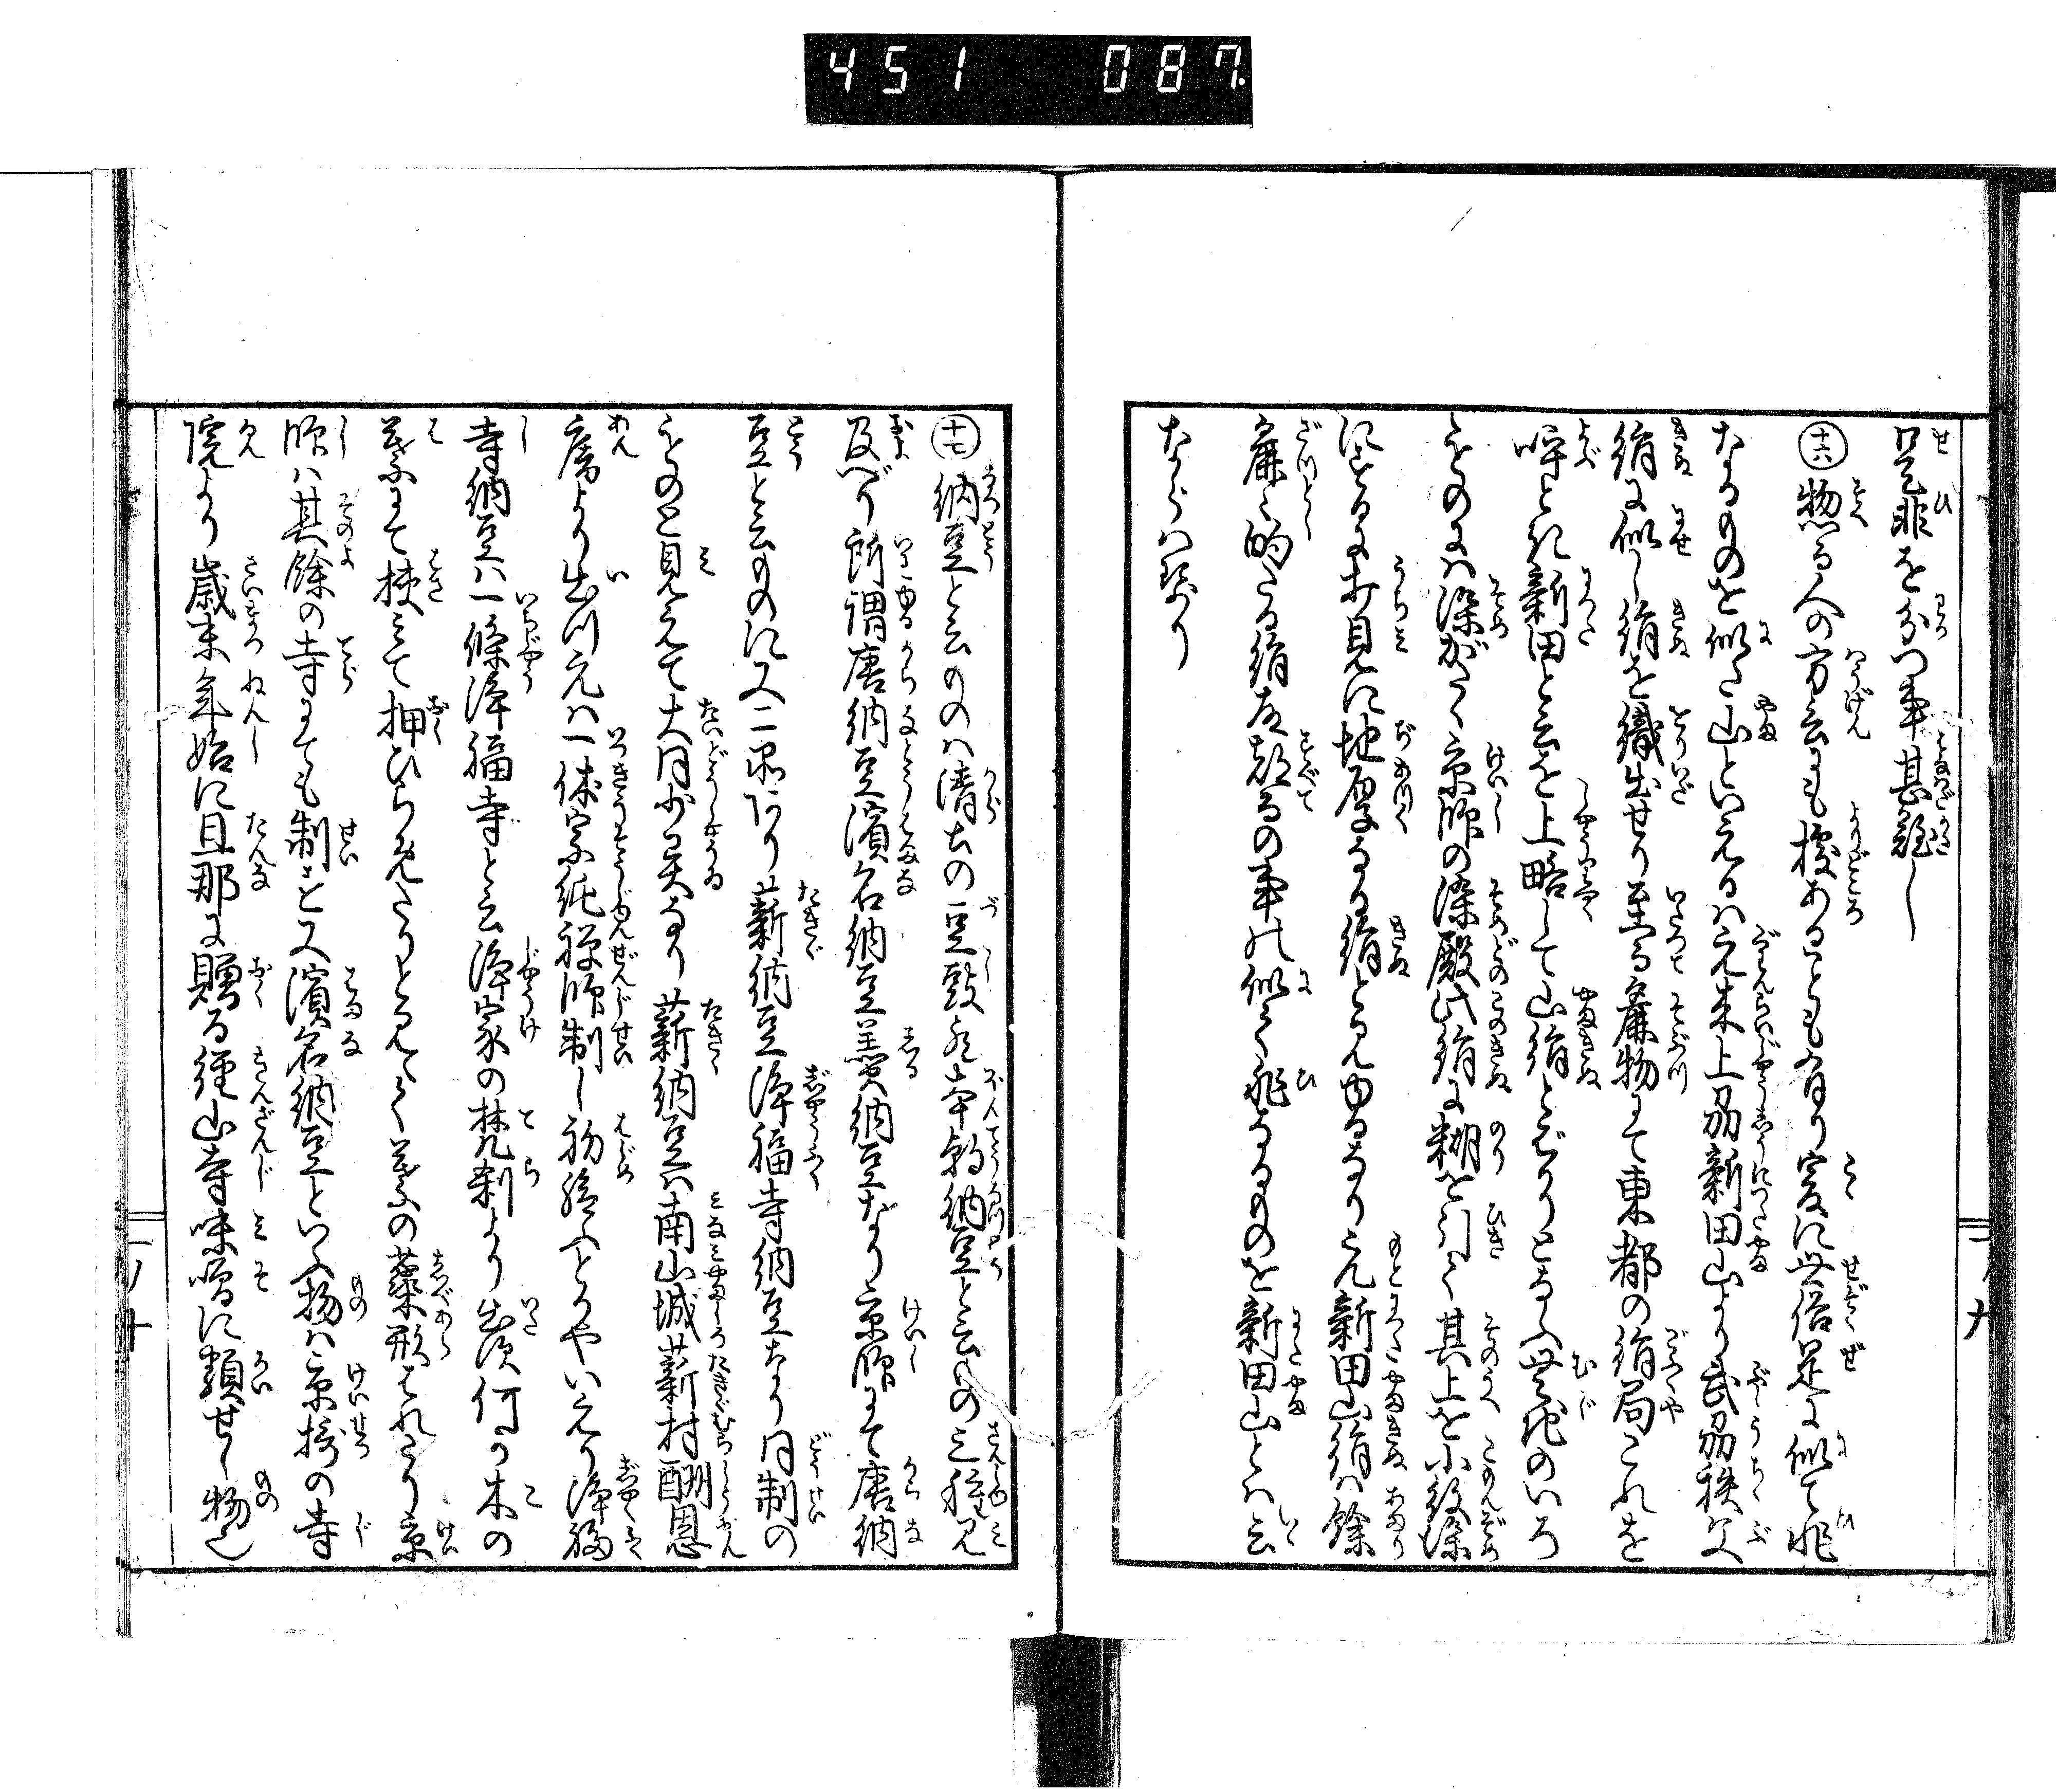 451 087
是非をわかつ事甚難し
十六 惣て人の方言にも據あるとも有り爰に世俗是に似て非
なるものを似た山といえるハ元来上州新田山より武州秩父
絹に似し絹を織出せり至て麁物にて東都の絹局これを
呼とき新田と云を上略して山絹とばかりとなふ無地のいろ
ものにハ染がたく京師の染殿此絹に糊を引て其上を小紋染
にするに打見に地厚なる絹と見ゆるなり元新田山絹ハ餘
麁々的たる絹故都ての事の似て非なるものを新田山とハ云
ならハせり
十七 納豆と云ものハ清土の豆豉是本朝納豆と云もの三種見
及べり所謂唐納豆濱名納豆羹納豆なり京師にて唐納
豆と云ものに又二品あり薪納豆浄福寺納豆なり同制の
ものと見えて大同少異なり薪納豆ハ南山城薪村酬恩
庵より出川元ハ一休宗純禅師制し初給ふとかやいえり浄福
寺納豆ハ一條浄福寺と云浄家の梵刹より出須何の木の
葉にて挟みて押ひらめたりと見えて葉の蘂形はれたり京
師ハ其餘の寺にても制と又濱名納豆といふ物ハ京摂の寺
院より歳末年始に旦那に贈る径山寺味噌に類せし物也
二ノ九
二ノ十